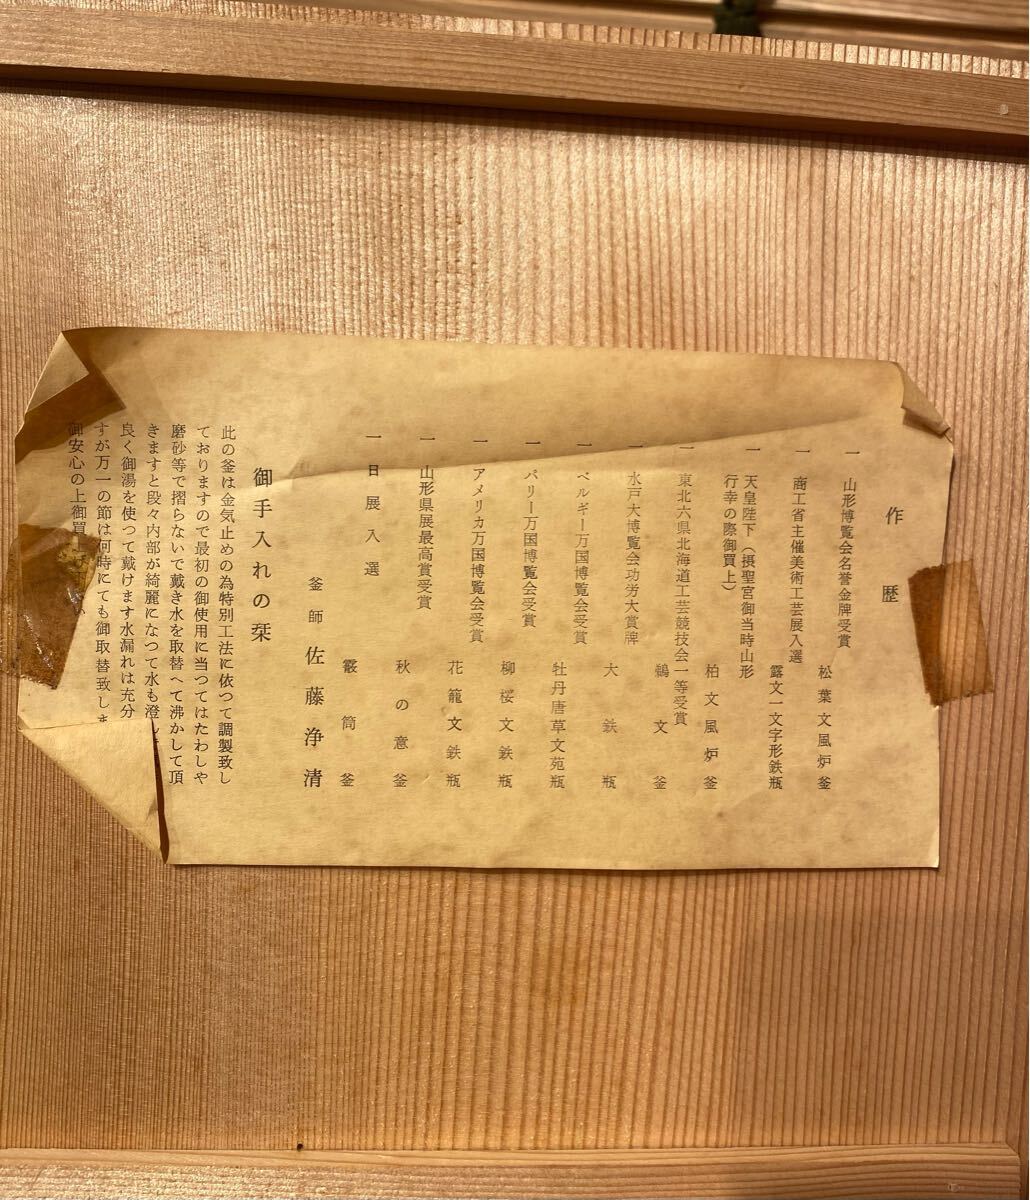 作歴
一 山形博覧会名誉金牌受賞
松葉文風炉釜
一 商工省主催美術工芸展入選
露文一文字形鉄瓶
一 天皇陛下（摂聖宮御当時山形
行幸の際御買上）
柏文風炉釜
一 東北六県北海道工芸競技会一等受賞
鶴文釜
一 水戸大博覧会功労大賞牌
大鉄瓶
一 ベルギー万国博覧会受賞
牡丹唐草文苑瓶
一 パリー万国博覧会受賞
柳桜文鉄瓶
一 アメリカ万国博覧会受賞
花籠文鉄瓶
一 山形県展最高賞受賞
秋の意釜
一 日展入選
筒釜
釜師 佐藤浄清
御手入れの栞
此の釜は金気止めの為特別工法に依つて調製致し
ておりますので最初の御使用に当つてはたわしや
磨砂等で摺らないで戴き水を取替へて沸かして頂
きますと段々内部が綺麗になつて水も澄
良く御湯を使つて戴けます水漏れは充分
すが万一の節は何時にても御取替致しま
御安心の上御買